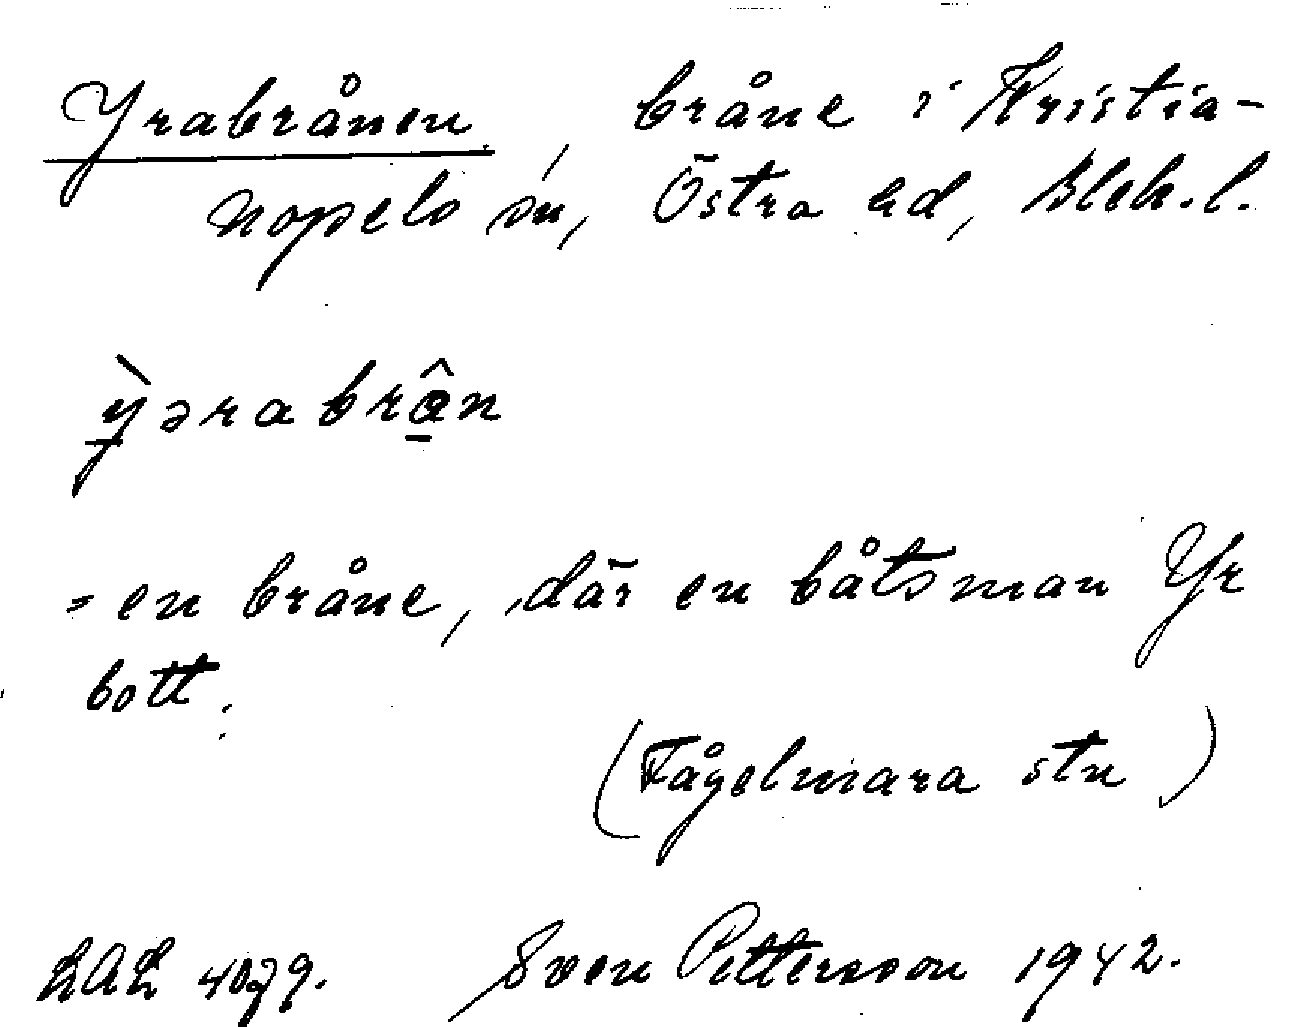 Yrabrånen, bråne i Kristia-
nopels sn, Östra hd, Blek.l.
ỳ̱ərabrα̱̂n
= en bråne, där en båtsman Yr
bott.
(Fågelmara stn)
LAL 4079. Sven Pettersson 1942.